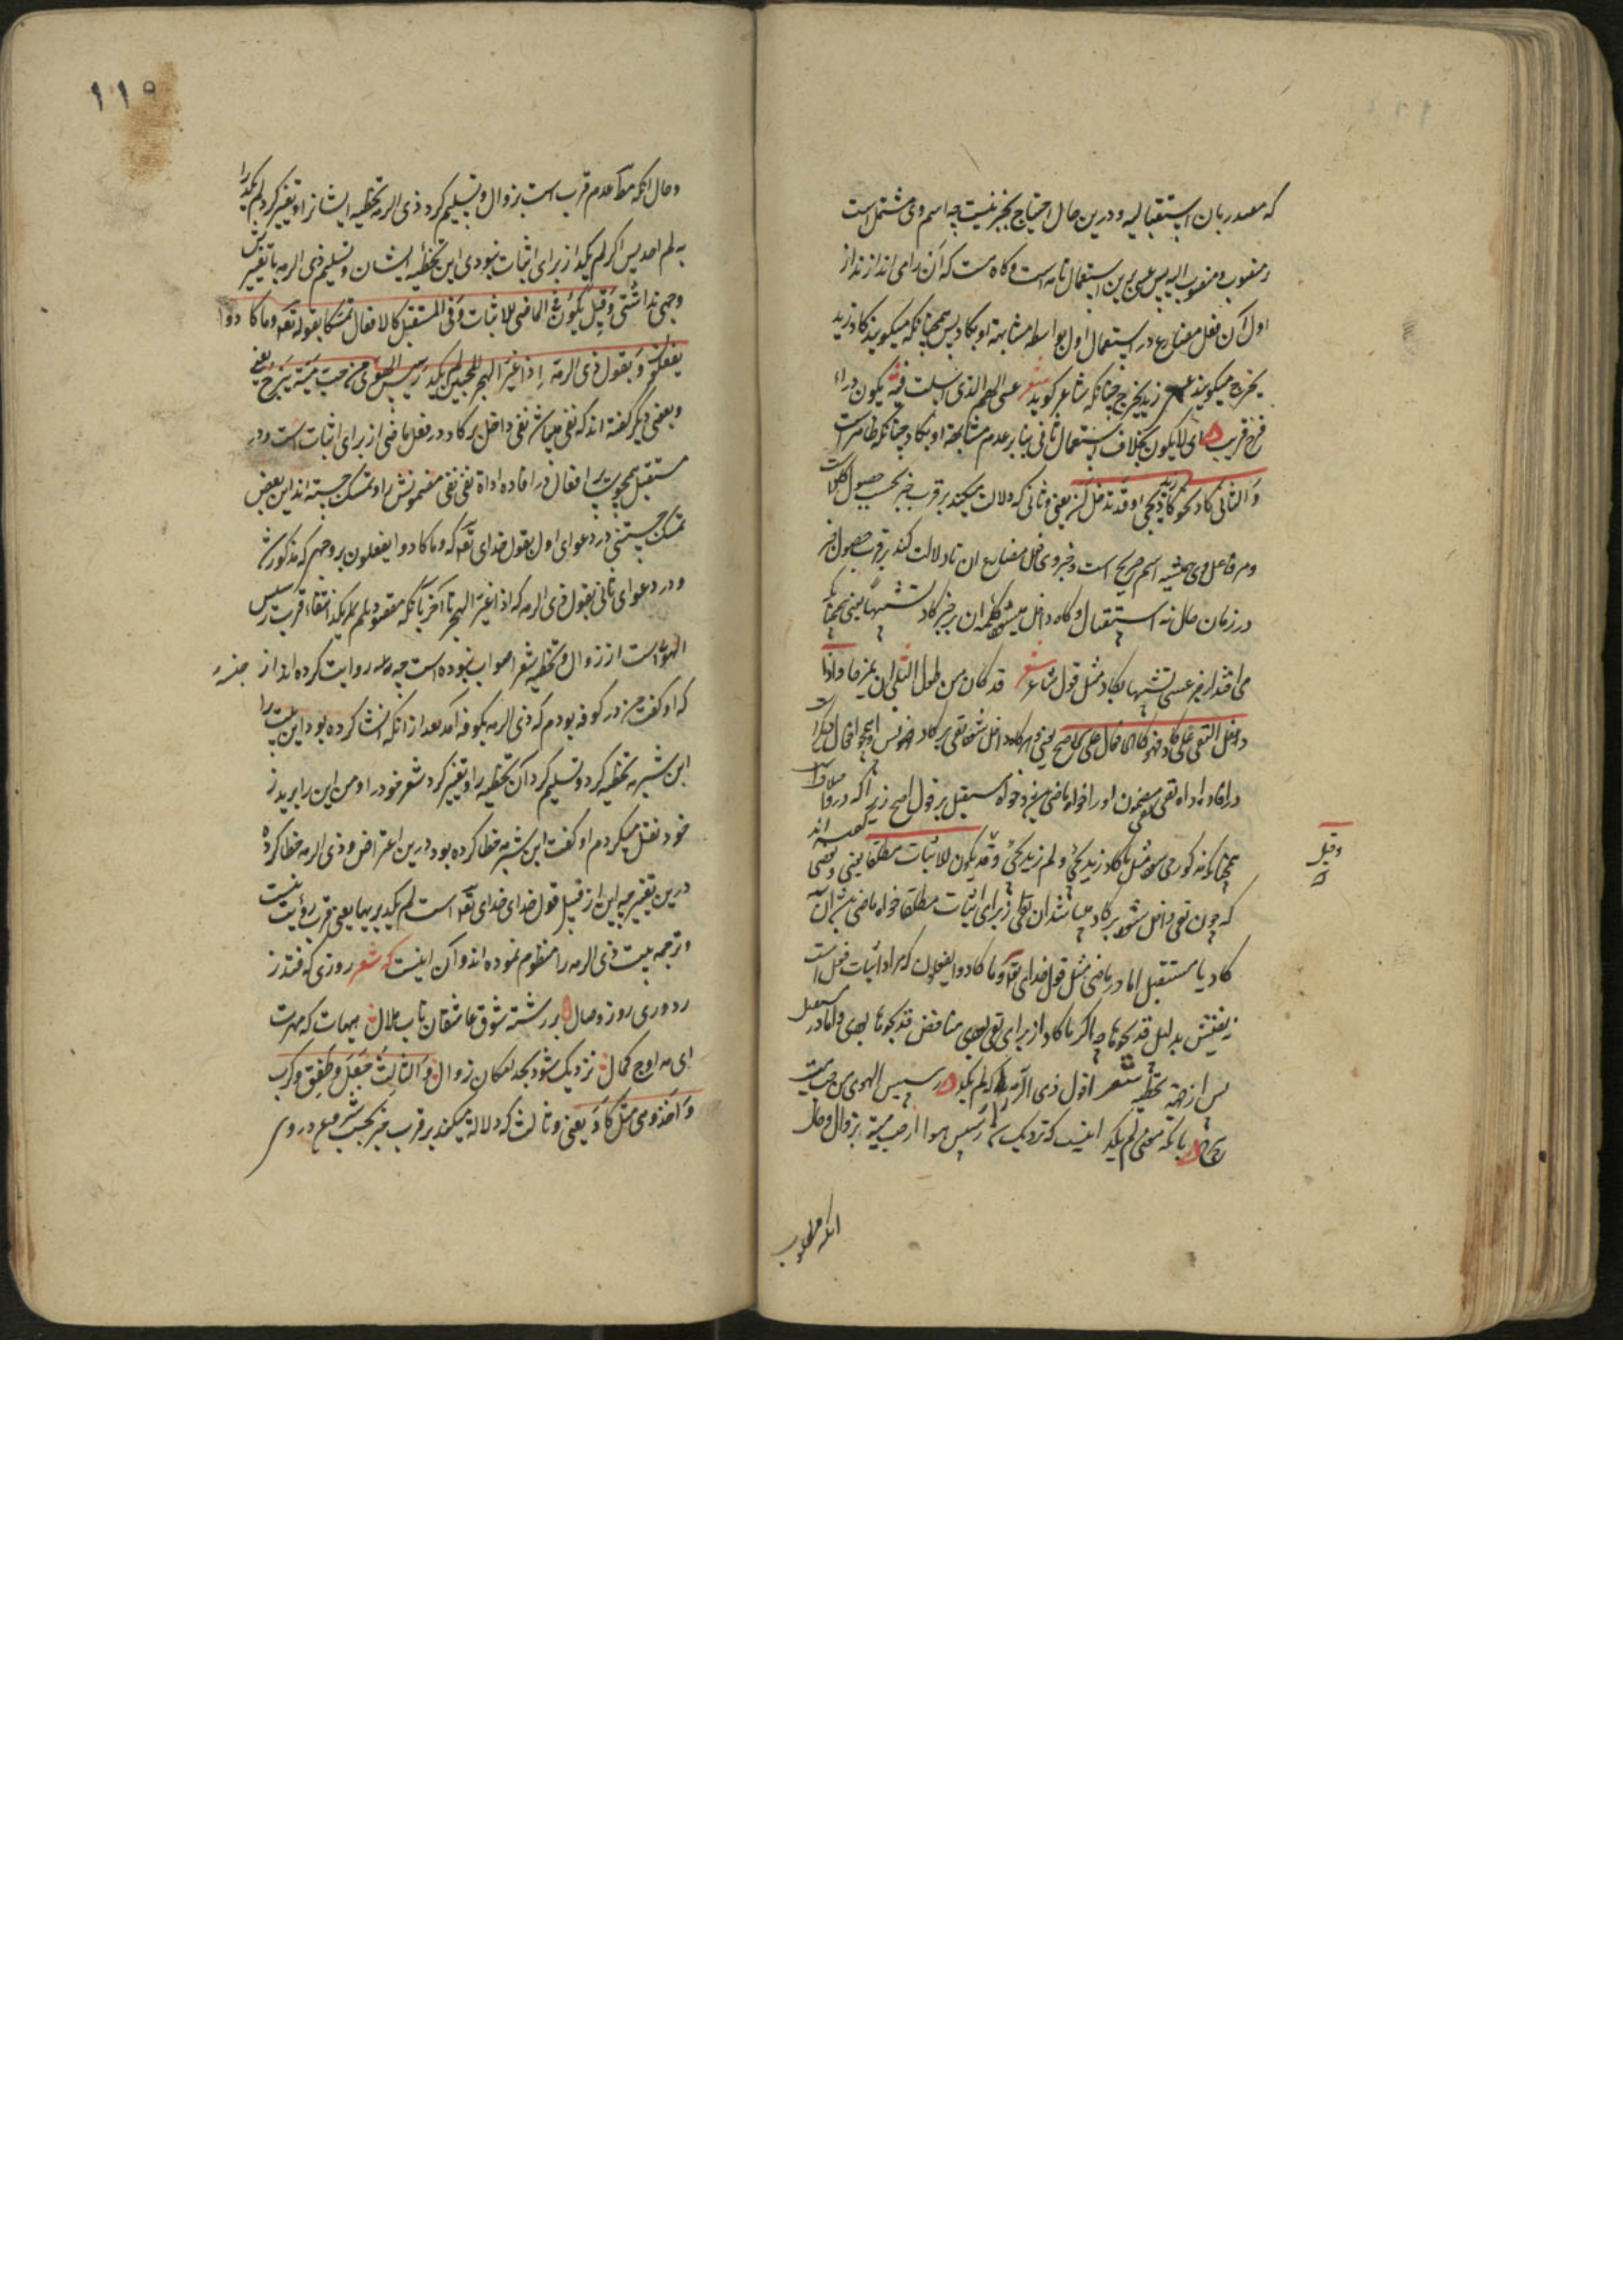 که مصدر بان استقبالیه و درین حال احتیاج بخبر نیست چه اسم وی مشتمل است
منصوب و منصوب الیه پس عسی برین استعمال تامه است و گاه هست که آن را می اندازند از
اول آن فعل مضارع در استعمال اول بواسطه مشابهة او بکاد پس همچنانکه میگویند کاد زید
یخرج میگویند عسی زید یخرج چنانکه شاعر گوید شعر عسی الهم الذی امسیت فیه یکون وراءه
فرج قریب ای لا یکون بخلاف استعمال ثانی بنابر عدم مشابهة او بکاد چنانکه ظاهر است
و الثانی کاد نحو کاد زید یجی و قد تدخل ان یعنی و ثانی که دلالت میکند بر قرب خبر بحسب حصول کلاست
و مر فاعل وی همیشه اسم صریح است و خبر وی فعل مضارع ان تا دلالت کند بر قرب حصول خبر
در زمان حال نه استقبال و گاه داخل میشود کلمه ان بر خبر کاد تشبیها یعنی همچنانکه
می افتد از خبر عسی تشبیها بکاد مثل قول شاعر شعر قد کاد من طول البلی ان یمزحا و اذا
دخل النفی علی کاد فهو کالافعال علی الاصح یعنی و هرگاه داخل شود نفی بر کاد پس او همچو افعال دیگر است
در افاده اداة نفی نفی مضمون او را خواه ماضی بود و خواه مستقبل بر قول اصح زیرا که در
همچنانکه مذکور می شود مثل ما کاد زید یجی و لم یکد زید یجی و قد یکون للاثبات مطلقا یعنی و بعضی گفته اند
که چون نفی داخل شود بر کاد میباشد آن نفی از برای اثبات مطلقا خواه ماضی باشد آن
کاد یا مستقبل اما در ماضی مثل قول خدای تعه و ما کادوا یفعلون که مراد اثبات فعل است
نه نفیش بدلیل فذبحوها چه اگر ما کاد از برای نفی بودی مناقض فذبحوها بودی و اما در مستقبل
پس از جهة تخطیه شعرا قول ذی الرمه را که لم یکد رسیس الهوی من حب میة
یبرح بانکه معنی لم یکد اینست که نزدیک شد رسیس هوا از حب میة بزوال و حال
انکه مطلوب
وقیل
۱۱۹
و حال انکه مطلوب عدم قرب است بزوال و تسلیم کرد ذی الرمه تخطیه ایشانرا و تغییر کرد لم یکد را
به لم اجد پس اگر لم یکد از برای اثبات نبودی این تخطیه ایشان و تسلیم ذی الرمه با تغییرش
وجهی نداشتی و قیل یکون فی الماضی للاثبات و فی المستقبل کالافعال تمسکا بقوله تعه و ما کادوا
یفعلون و بقول ذی الرمة اذا غیر الهجر المحبین لم یکد رسیس الهوی من حب میة یبرح یعنی
و بعضی دیگر گفته اند که نفی میباشد نفی داخل بر کاد در فعل ماضی از برای اثبات است و در
مستقبل همچو سایر افعال در افاده اداة نفی نفی مضمونش را و تمسک جسته اند این بعض
تمسک جستنی در دعوای اول بقول خدای تعه که و ما کادوا یفعلون بر وجهی که مذکور شد
و در دعوای ثانی بقول ذی الرمه که اذا غیر الهجر تا آخر بانکه مقصود بلم یکد انتفاء قرب رسیس
الهوی است از زوال و تخطیه شعرا صواب نبوده است چه روایت کرده اند از عنبسه
که او گفت من در کوفه بودم که ذی الرمه بکوفه آمد بعد از انکه انشا کرده بود این بیت را
ابن شبرمه تخطیه کرد و تسلیم کرد آن تخطیه را و تغییر کرد شعر خود را و من این را بپدر
خود نقل میکردم او گفت ابن شبرمه خطا کرده بود درین اعتراض و ذی الرمه خطا کرده
درین تغییر چه این از قبیل قول خدای تعه است لم یکد یریها یعنی قرب رؤیت نیست
و ترجمه بیت ذی الرمه را منظوم نموده اند و آن اینست که شعر روزی که فتد ز
دوری روز وصال بر رشته شوق عاشقان تاب ملال هیهات که مهرت
ای مه اوج کمال نزدیک شود بحد امکان زوال و الثالث جعل و طفق و کرب
و اخذ و هی مثل کاد یعنی و ثالث که دلالة میکند بر قرب خبر بحسب شروع در وی